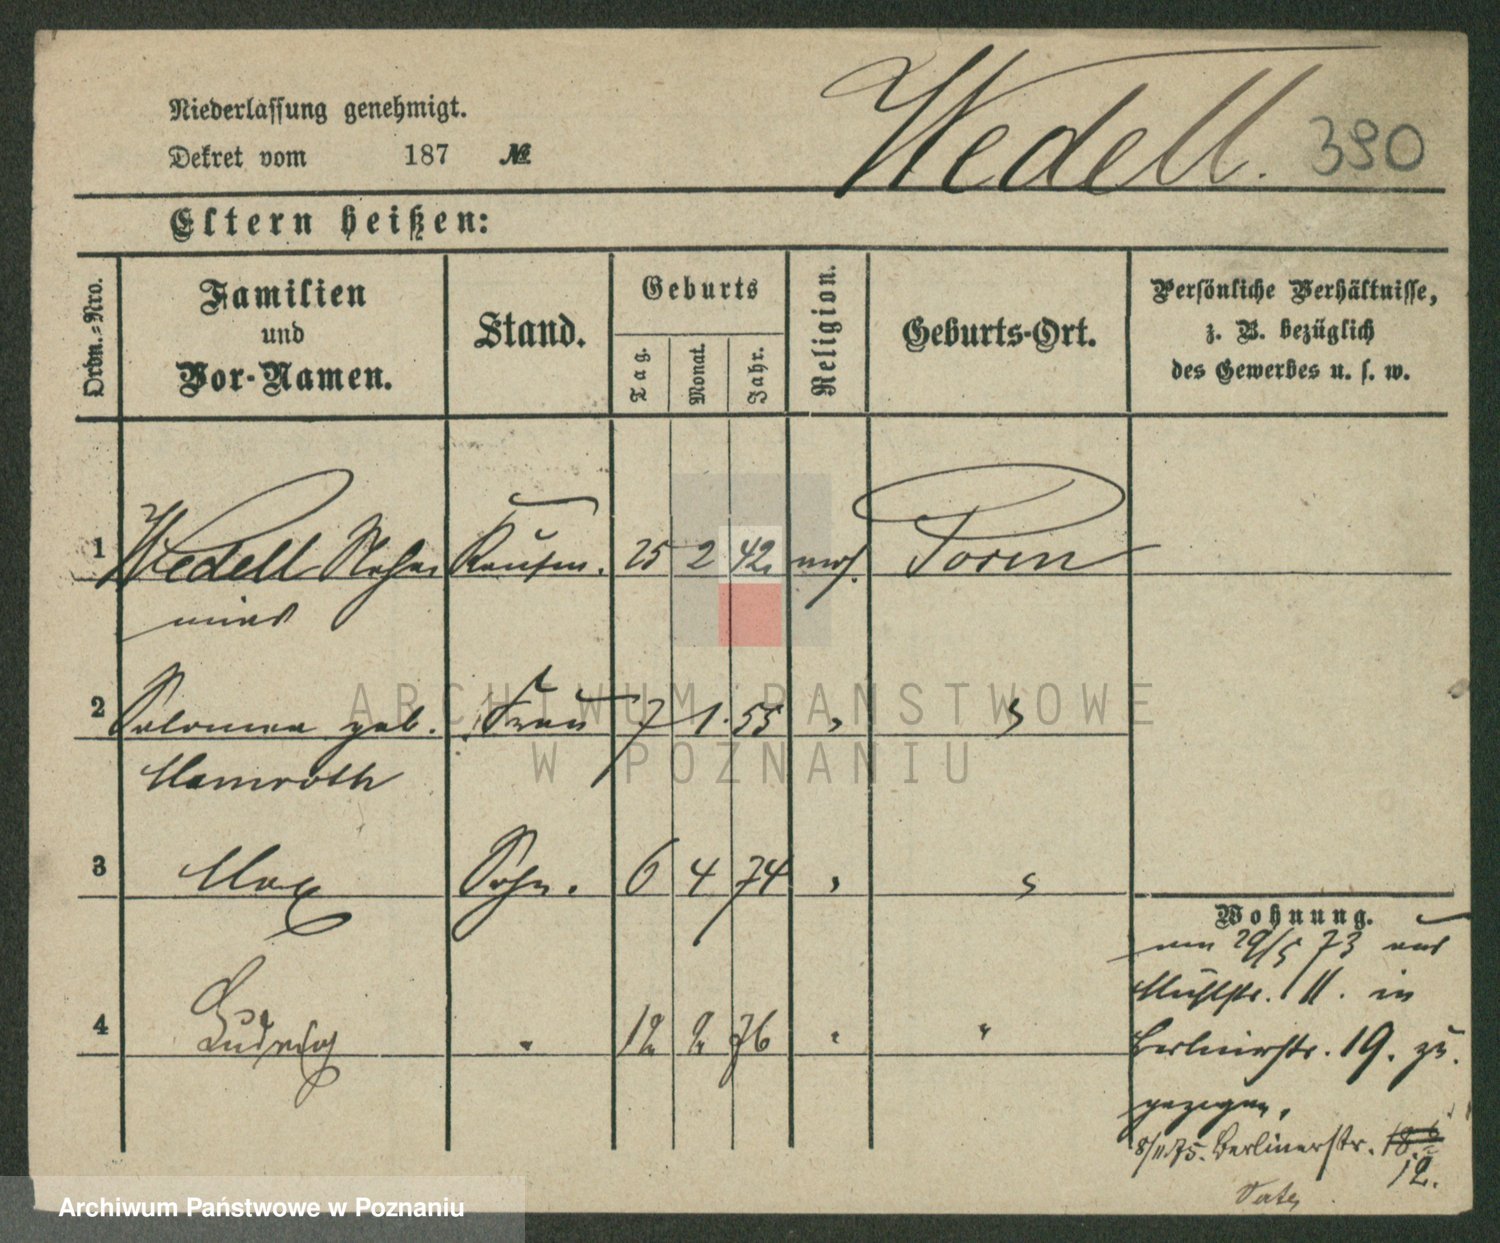 Niederlassung genehmigt.
Dekret vom 187 №
Wedell. 390
Eltern heißen:
Ordn.-Nro.
Familien
und
Vor-Namen.
Stand.
Geburts
Tag.
Monat.
Jahr.
Religion.
Geburts-Ort.
Persönliche Verhältnisse,
z. B. bezüglich
des Gewerbes u. s. w.
1 Wedell Nehe Kaufm. 25 2 42. mos. Posen
mias
2 Salomea geb. Frau 7 1. 55 " "
Mamroth
3 Max Sohn. 6 4 74 " "
4 Ludwig " 12 2 76 " "
Wohnung.
29/5 73 aus
Mühlstr. 11. in
Berlinerstr. 19. zu
gezogen.
8/11 75. Berlinerstr. 18.
12.
ARCHIWUM PAŃSTWOWE
W POZNANIU
Archiwum Państwowe w Poznaniu